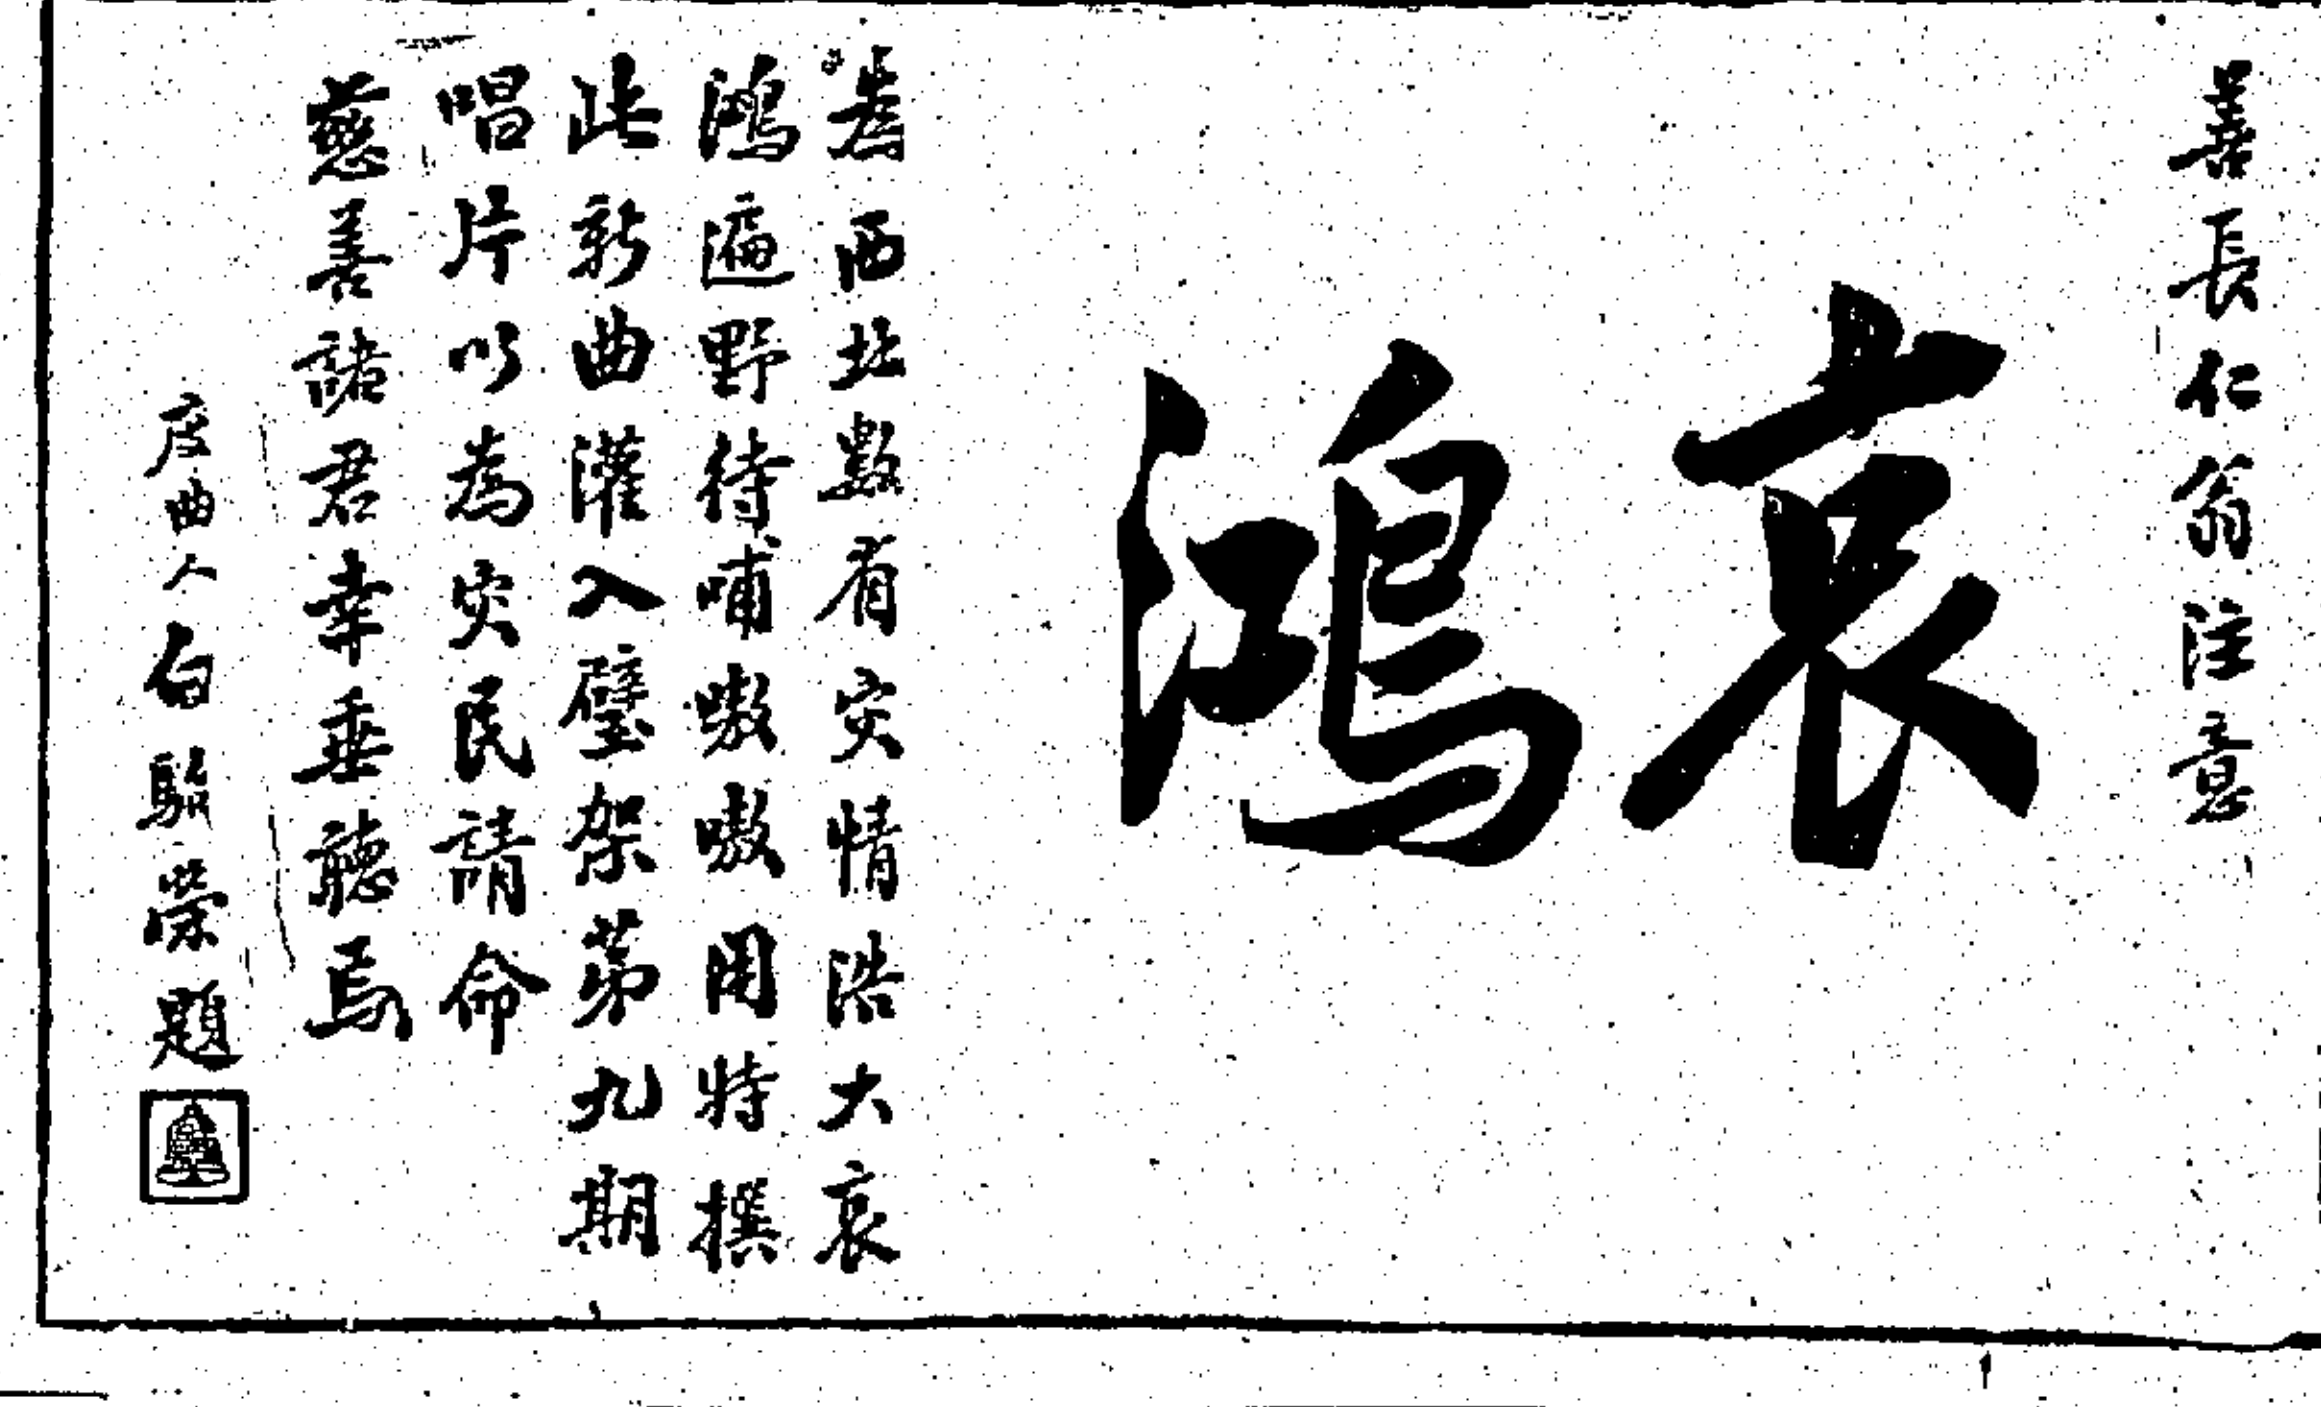 善長仁翁注意
哀鴻
為西北數省灾情浩大哀
鴻遍野待哺嗷嗷用特撰
此新曲灌入璧架第九期
唱片以為灾民請命
慈善諸君幸垂聽焉
度曲人白駒榮題